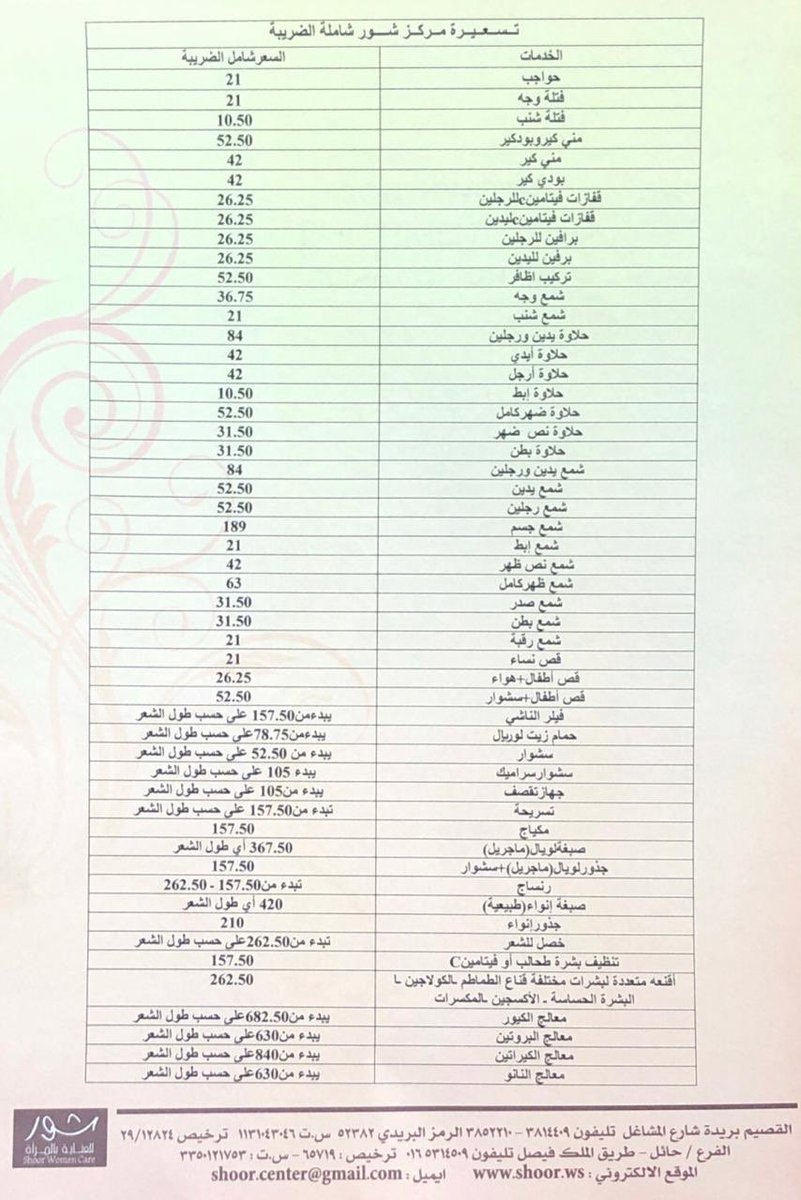 تـسـعـيـرة مـركـز شـــور شاملة الضريبة
الخدمات السعرشامل الضريبة
حواجب 21
فتلة وجه 21
فتلة شنب 10.50
مني كيروبودكير 52.50
مني كير 42
بودي كير 42
قفازات فيتامينcللرجلين 26.25
قفازات فيتامينcليدين 26.25
برافين للرجلين 26.25
برفين لليدين 26.25
تركيب اظافر 52.50
شمع وجه 36.75
شمع شنب 21
حلاوة يدين ورجلين 84
حلاوة أيدي 42
حلاوة أرجل 42
حلاوة إبط 10.50
حلاوة ضهركامل 52.50
حلاوة نص ضهر 31.50
حلاوة بطن 31.50
شمع يدين ورجلين 84
شمع يدين 52.50
شمع رجلين 52.50
شمع جسم 189
شمع إبط 21
شمع نص ظهر 42
شمع ظهركامل 63
شمع صدر 31.50
شمع بطن 31.50
شمع رقبة 21
قص نساء 21
قص أطفال+هواء 26.25
قص أطفال+سشوار 52.50
فيلر الناشي يبدءمن157.50 على حسب طول الشعر
حمام زيت لوريال يبدءمن78.75على حسب طول الشعر
سشوار يبدء من 52.50 على حسب طول الشعر
سشوارسراميك يبدء 105 على حسب طول الشعر
جهازتقصف يبدء من105 على حسب طول الشعر
تسريحة تبدء من157.50 على حسب طول الشعر
مكياج 157.50
صبغةلويال(ماجريل) 367.50 أي طول الشعر
جذورلويال(ماجريل)+سشوار 157.50
رنساج تبدء من157.50 - 262.50
صبغة إنواء(طبيعية) 420 أي طول الشعر
جذورإنواء 210
خصل للشعر تبدء من262.50على حسب طول الشعر
تنظيف بشرة طحالب أو فيتامينC 157.50
أقنعه متعددة لبشرات مختلفة قناع الطماطم ـالكولاجين ـا 262.50
البشرة الحساسة ـ الأكسجين ـالمكسرات
معالج الكيور يبدء من682.50على حسب طول الشعر
معالج البروتين يبدء من630على حسب طول الشعر
معالج الكيراتين يبدء من840على حسب طول الشعر
معالج النانو يبدء من630على حسب طول الشعر
القصيم بريدة شارع المشاغل تليفون ٣٨١٤٤٠٩ - ٣٨٥٢٢١٠ الرمز البريدي ٥٢٣٨٢ س.ت ١١٣١٠٤٣٠٤٦ ترخيص ٢٩/١٢٨٢٤
الفرع / حائل - طريق الملك فيصل تليفون ٠١٦٥٣١٤٥٠٩ ترخيص : ٦٥٧١٩ - س.ت : ٣٣٥٠١٢١٧٥٣
الموقع الالكتروني : www.shoor.ws ايميل : shoor.center@gmail.com
شور
للعناية بالمرأة
Shoor Women Care